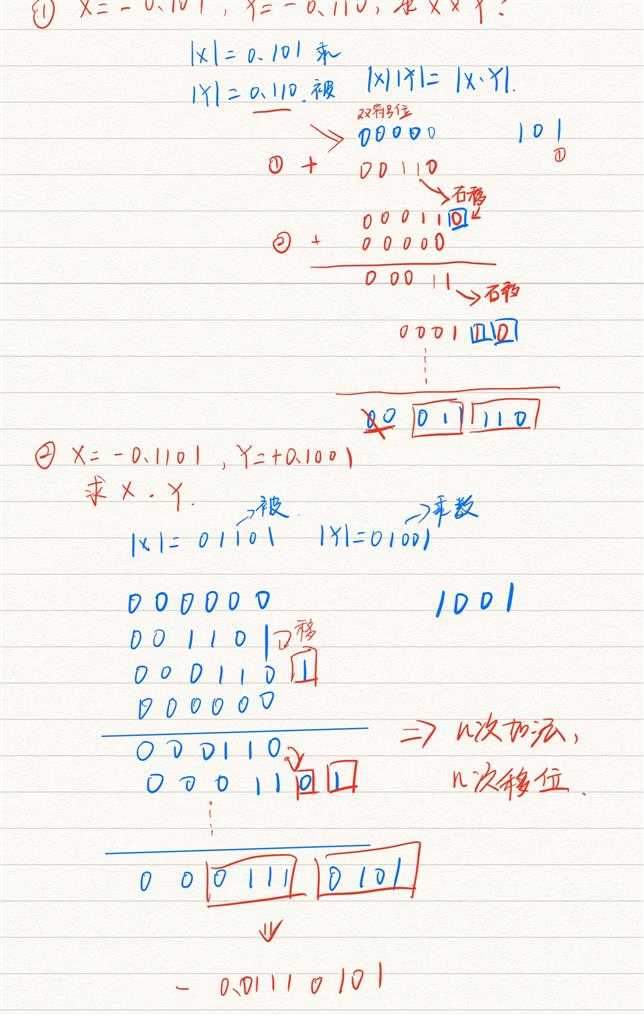 ① X = -0.101, Y = -0.110, 求 X × Y ?
|X| = 0.101 乘
|Y| = 0.110. 被 |X||Y| = |X·Y|.
双符号位
00000 101
① + 00110 ①
右移
000110
② + 00000
00011
右移
000110
00 01 110
② X = -0.1101, Y = +0.1001
求 X · Y.
→被. →乘数
|X| = 01101 |Y| = 01001
000000 1001
001101 移
0001101
000000
000110 ⇒ n次加法,
0001101 n次移位.
00 0111 0101
- 0.01110101